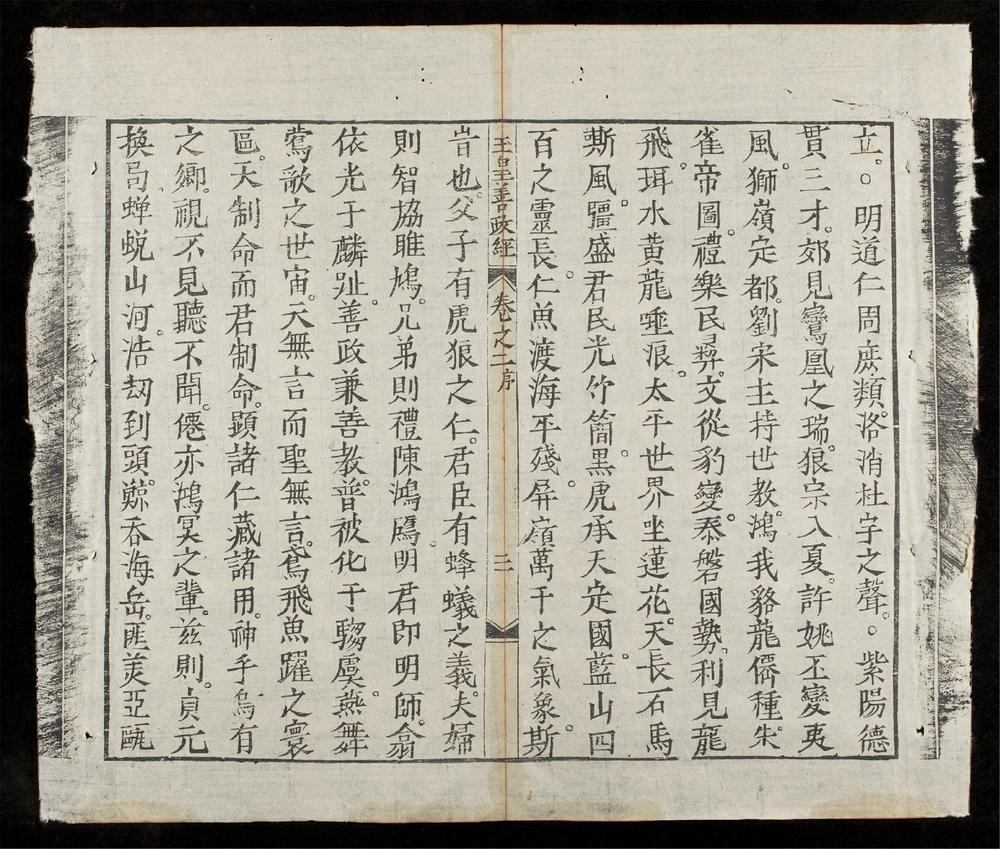 立。○明道仁周庶類。洛消杜字之聲。○紫陽德
貫三才。郊見鸞凰之瑞。狼宗入夏。許姚丕變夷
風。獅嶺定都。劉宋主持世教。鴻我貉龍儕種。朱
雀帝圖。禮樂民彛。文從豹變。泰磐國勢。利見龍
飛。珥水黃龍唾浪。太平世界坐蓮花。天長石馬
嘶風。彊盛君民光竹簡。黑虎承天定國。藍山四
百之靈長。仁魚渡海平殘。屏嶺萬千之氣象。斯
玉皇善政經 卷之二序 三
旹也。父子有虎狼之仁。君臣有蜂蟻之義。夫婦
則智協雎鳩。兄弟則禮陳鴻鴈。明君即明師。翕
依光于麟趾。善政兼善教。普被化于騶虞。燕舞
鶯歌之世宙。天無言而聖無言。鳶飛魚躍之寰
區。天制命而君制命。顕諸仁藏諸用。神乎烏有
之鄉。視不見聽不聞。僊亦鴻冥之輩。兹則。貞元
換局。蟬蛻山河。浩刼到頭。鯨吞海岳。匪羙亞甌